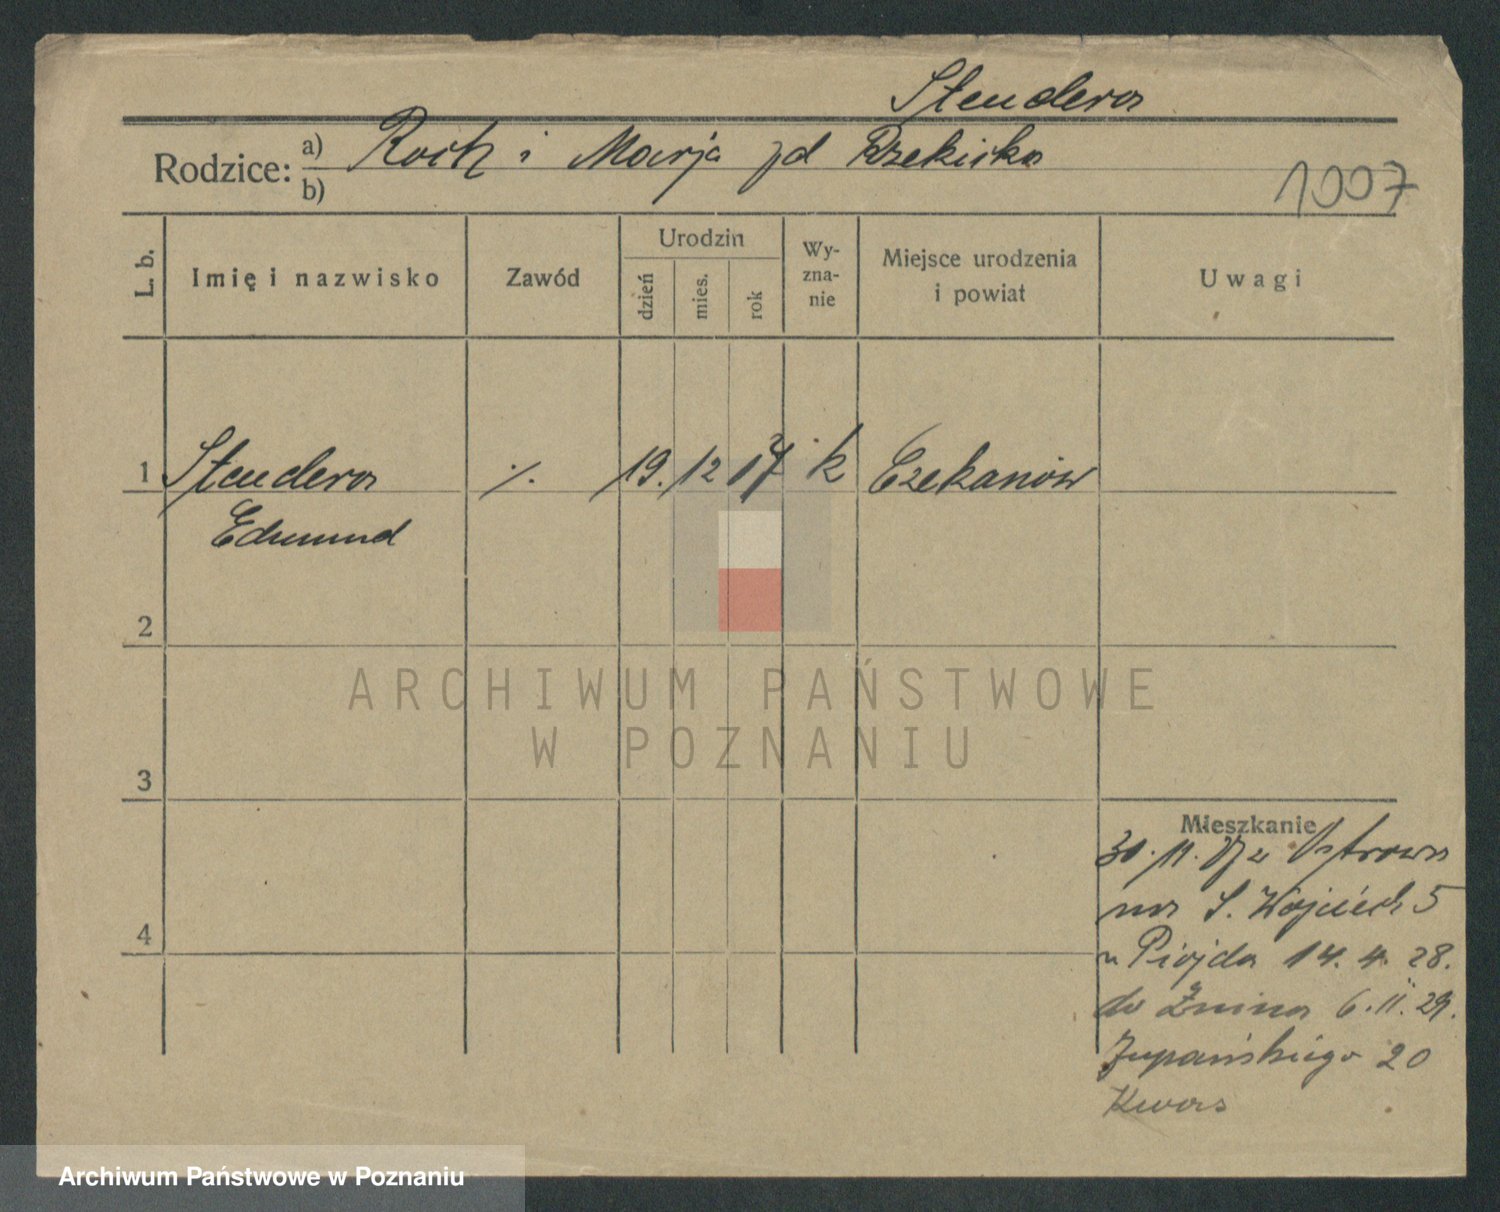 Stendera
Rodzice: a) Roch i Marja zd Rzekiecka
b)
1007
L. b. Imię i nazwisko Zawód Urodzin dzień mies. rok Wyznanie Miejsce urodzenia i powiat Uwagi
1 Stendera ./. 19. 12 17 k Czekanów
Edmund
2
3
4
Mieszkanie
30. 11. 27 z Ostrowa
na S. Wojciech 5
u Pivjda 14. 4. 28.
do Żnina 6. II. 29.
Żupańskiego 20
ARCHIWUM PAŃSTWOWE
W POZNANIU
Archiwum Państwowe w Poznaniu